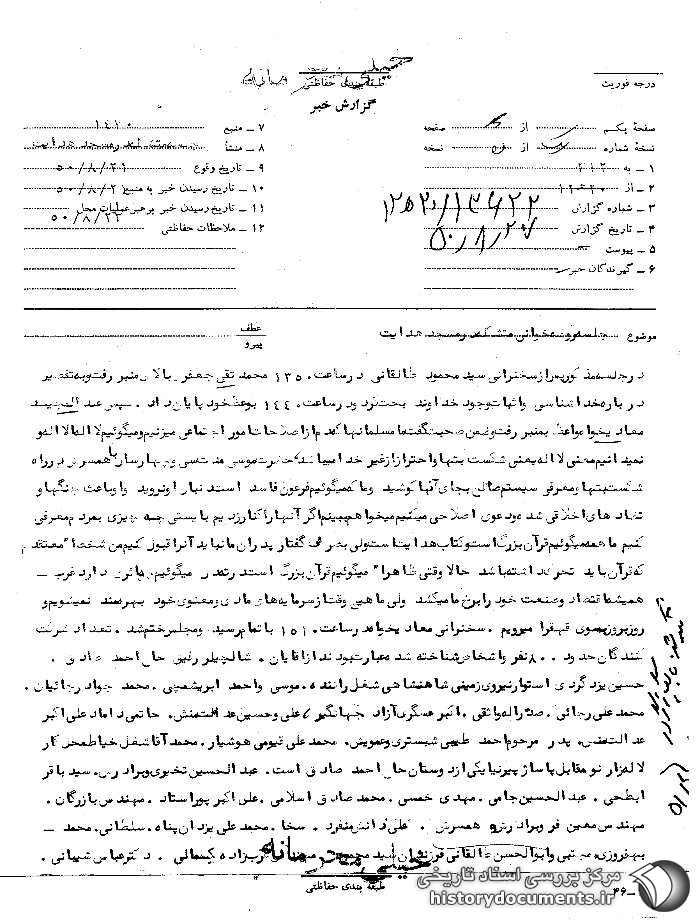 خیلی محرمانه
طبقه بندی حفاظتی
گزارش خبر
درجه فوریت
صفحه یکم از صفحه
نسخه شماره از نسخه
۱ ـ به ۳۱۲
۲ ـ از
۳ ـ شماره گزارش
۴ ـ تاریخ گزارش ۵۰/۸/۲۷
۵ ـ پیوست
۶ ـ گیرندگان خبر
۷ ـ منبع
۸ ـ منشأ
۹ ـ تاریخ وقوع ۵۰/۸/۲۱
۱۰ ـ تاریخ رسیدن خبر به منبع ۵۰/۸/۲۱
۱۱ ـ تاریخ رسیدن خبر به رهبر عملیات محل ۵۰/۸/۲۲
۱۲ ـ ملاحظات حفاظتی
موضوع جلسه متشکله در مسجد هدایت
عطف
پیرو
در جلسه مذکور پس از سخنرانی سید محمود طالقانی در ساعت محمد تقی جعفری بالای منبر رفت و به تفسیر
درباره خداشناسی و اثبات وجود خداوند بحث کرد و در ساعت بوعظ خود پایان داد . سپس عبدالمجید
معادیخواه واعظ بمنبر رفت و ضمن صحبت گفت ما مسلمانها کدام از اصلاحات امور اجتماعی میزنیم و میگوئیم لااله الااله و
نمیدانیم معنی لااله یعنی شکست بتها و احتراز از غیر خدا حضرت موسی با همسرش در راه
شکست بتها و معرفی سیستم صالح بجای آنها کوشید و ما که میگوئیم فرعون فاسد است دنبال او نروید و او باعث جنگها و
تضادهای اخلاقی شده و دعوی اصلاحی میکنیم میخواهم ببینم اگر آنها را کنار زدیم بایستی چه چیزی بمردم معرفی
کنیم ما همه میگوئیم قرآن بزرگ است و کتاب هدایت است ولی بصرف گفتار پدران ما نباید آنرا قبول کنیم من شخصا معتقدم
که قرآن باید تحرک داشته باشد حالا وقتی ظاهرا میگوئیم قرآن بزرگ است در عمل میگوئیم دارد غرب ـ
همیشه اقتصاد و صنعت خود را برخ ما میکشد ولی ما هیچ وقت از سرمایه‌های مادی و معنوی خود بهره‌مند نمیشویم و
روز بروز بسوی قهقرا میرویم . سخنرانی معادیخواه در ساعت باتمام رسید و مجلس ختم شد . تعداد شرکت
کنندگان حدود نفر و اشخاص شناخته شده عبارت بودند از آقایان . شالچیلر رفیق حاج احمد صادق .
حسین یزدگردی استوار نیروی زمینی شاهنشاهی شغل راننده . موسی و احمد ابریشمچی . محمد جواد رجائیان .
محمد علی رجائی . صدراله واثقی . اکبر عسگری آزاد جهانگیر علی و حسین عدالتمنش . حاتمی داماد علی اکبر
عدالتمنش . پدر مرحوم احمد طبیبی شبستری و عمویش . محمد علی قیومی هوشیار . محمد آقا شغل خیاط محل کار
لاله‌زار نو مقابل پاساژ پیرنیا یکی از دوستان حاج احمد صادق است . عبدالحسین تخبری و برادرش . سید باقر
ابطحی . عبدالحسین جامی . مهدی خمسی . محمد صادق اسلامی . علی اکبر پوراستاد . مهندس بازرگان .
مهندس معین فر و برادرش و همسرش . علی دانش منفرد . سخا . محمد علی یزدان پناه . سلطانی . محمد ـ
بهفروزی . مجتبی و ابوالحسن طالقانی فرزندان سید محمود . مهندس عرب‌زاده . دکتر عباس شیبانی .
خیلی محرمانه
طبقه بندی حفاظتی
۳۶ ـ
مرکز بررسی اسناد تاریخی
historydocuments.ir